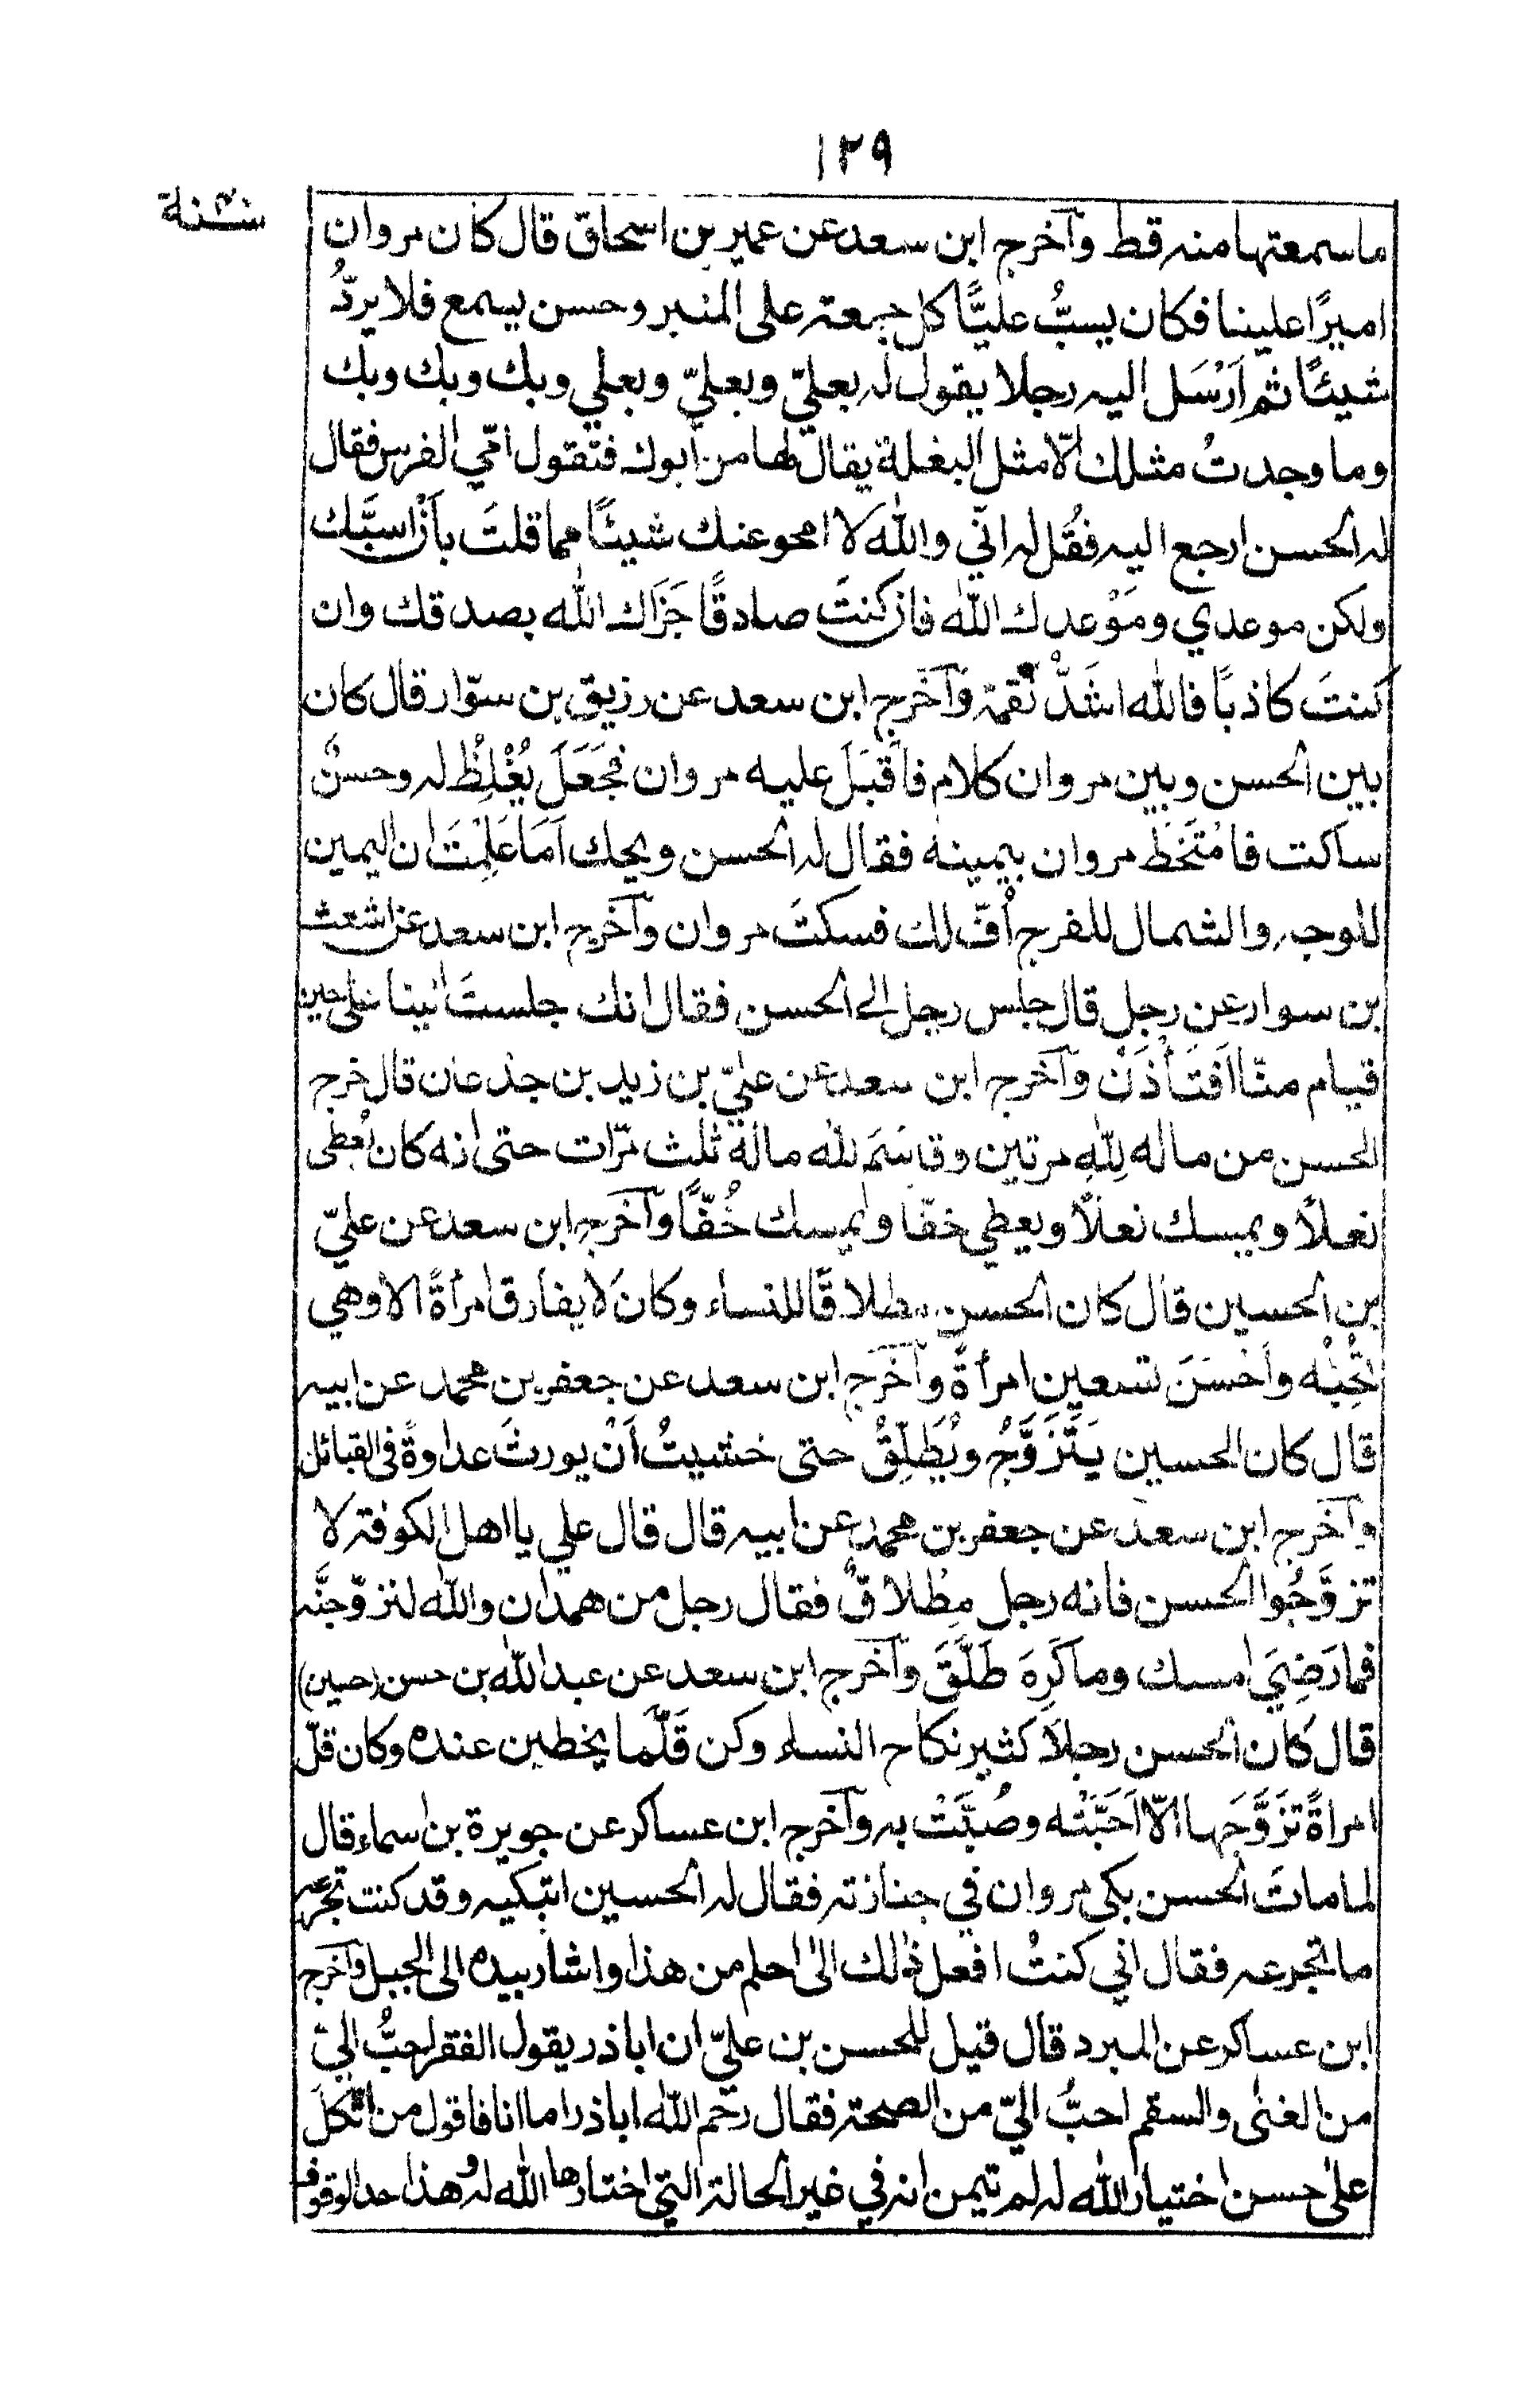 ١٢٩
سنة
ما سمعتها منه قط وآخرج ابن سعد عن عمير بن اسحاق قال كان مروان
اميرًا علينا فكان يسبُّ عليًّا كل جمعة على المنبر وحسن يسمع فلا يردُّ
شيئًا ثم اَرْسَل اليه رجلا يقول له بعليّ وبعليّ وبعلي وبك وبك وبك
وما وجدتُ مثلك الّا مثل البغلة يقال لها من أبوك فتقول امّي الفرس فقال
له الحسن ارجع اليه فقُل له انّي والله لا امحو عنك شيئًا مما قلتَ بأن اسبَّك
ولكن موعدي وموْعدك الله فان كنتَ صادقًا جَزَاك الله بصدقك وان
كنتَ كاذبًا فالله اشَدُّ نقمة وآخَرج ابن سعد عن رزيق بن سوّار قال كان
بين الحسن وبين مروان كلام فاَقْبَلَ عليه مروان فجَعَلَ يُغْلِظُ له وحسنٌ
ساكت فامْتَخَطَ مروان بيمينه فقال له الحسن ويحك آمَا عَلِمْتَ ان اليمين
للوجه والشمال للفرج اُفّ لك فسكتَ مروان وآخرج ابن سعد عن اشعث
بن سوار عن رجل قال جلس رجل الى الحسن فقال انك جلستَ الينا على حين
قيام منّا اَفَتَأْذَنْ وآخرج ابن سعد عن عليّ بن زيد بن جذعان قال خرج
الحسن من ماله لِلّٰهِ مرتين وقاسَمَ لله ماله ثلث مرّات حتى انه كان يُعطى
نعلاً ويمسك نعلاً ويعطي خفّا ويمسك خُفًّا وآخَرج ابن سعد عن عليّ
بن الحسين قال كان الحسن مطلاقًا للنساء وكان لا يفارق امرأةً الا وهي
تُحِبُّه وأَحْسَنَ تسعين امرأةً وآخَرج ابن سعد عن جعفر بن محمد عن ابيه
قال كان الحسين يَتَزَوَّجُ ويُطَلِّقُ حتى خشيتُ أنْ يورثَ عداوةً في القبائل
وآخَرج ابن سعد عن جعفر بن محمد عن ابيه قال قال علي يا اهل الكوفة لا
تزوَّجُوا الحسن فانه رجل مِطْلاقٌ فقال رجل من همدان والله لنزوّجنَّه
فما رَضِيَ امسك وما كَرِهَ طَلَّقَ وآخَرج ابن سعد عن عبد الله بن حسن (حسين)
قال كان الحسن رجلاً كثير نكاح النساء وكن قَلَّما يخطين عنده وكان قلّ
امراةً تَزَوَّجَها الّا اَحَبَّتْه وصُبَّتْ به وآخرج ابن عساكر عن جويرة بن اسماء قال
لما ماتَ الحسن بكى مروان في جنازته فقال له الحسين اتبكيه وقد كنت تجرّعه
ما تجرعه فقال اني كنتُ افعل ذلك الىٰ احلم من هذا واشار بيده الى الجبل وآخرج
ابن عساكر عن المبرد قال قيل للحسن بن عليّ ان اباذر يقول الفقر احبُّ اليّ
من الغنٰى والسقم احبُّ اليّ من الصحة فقال رحم الله اباذر اما انا فاقول من اتّكل
علٰى حسن اختيار الله له لم يتمن انه في غير الحالة التي اختارها الله له وهذا حد الوقوف